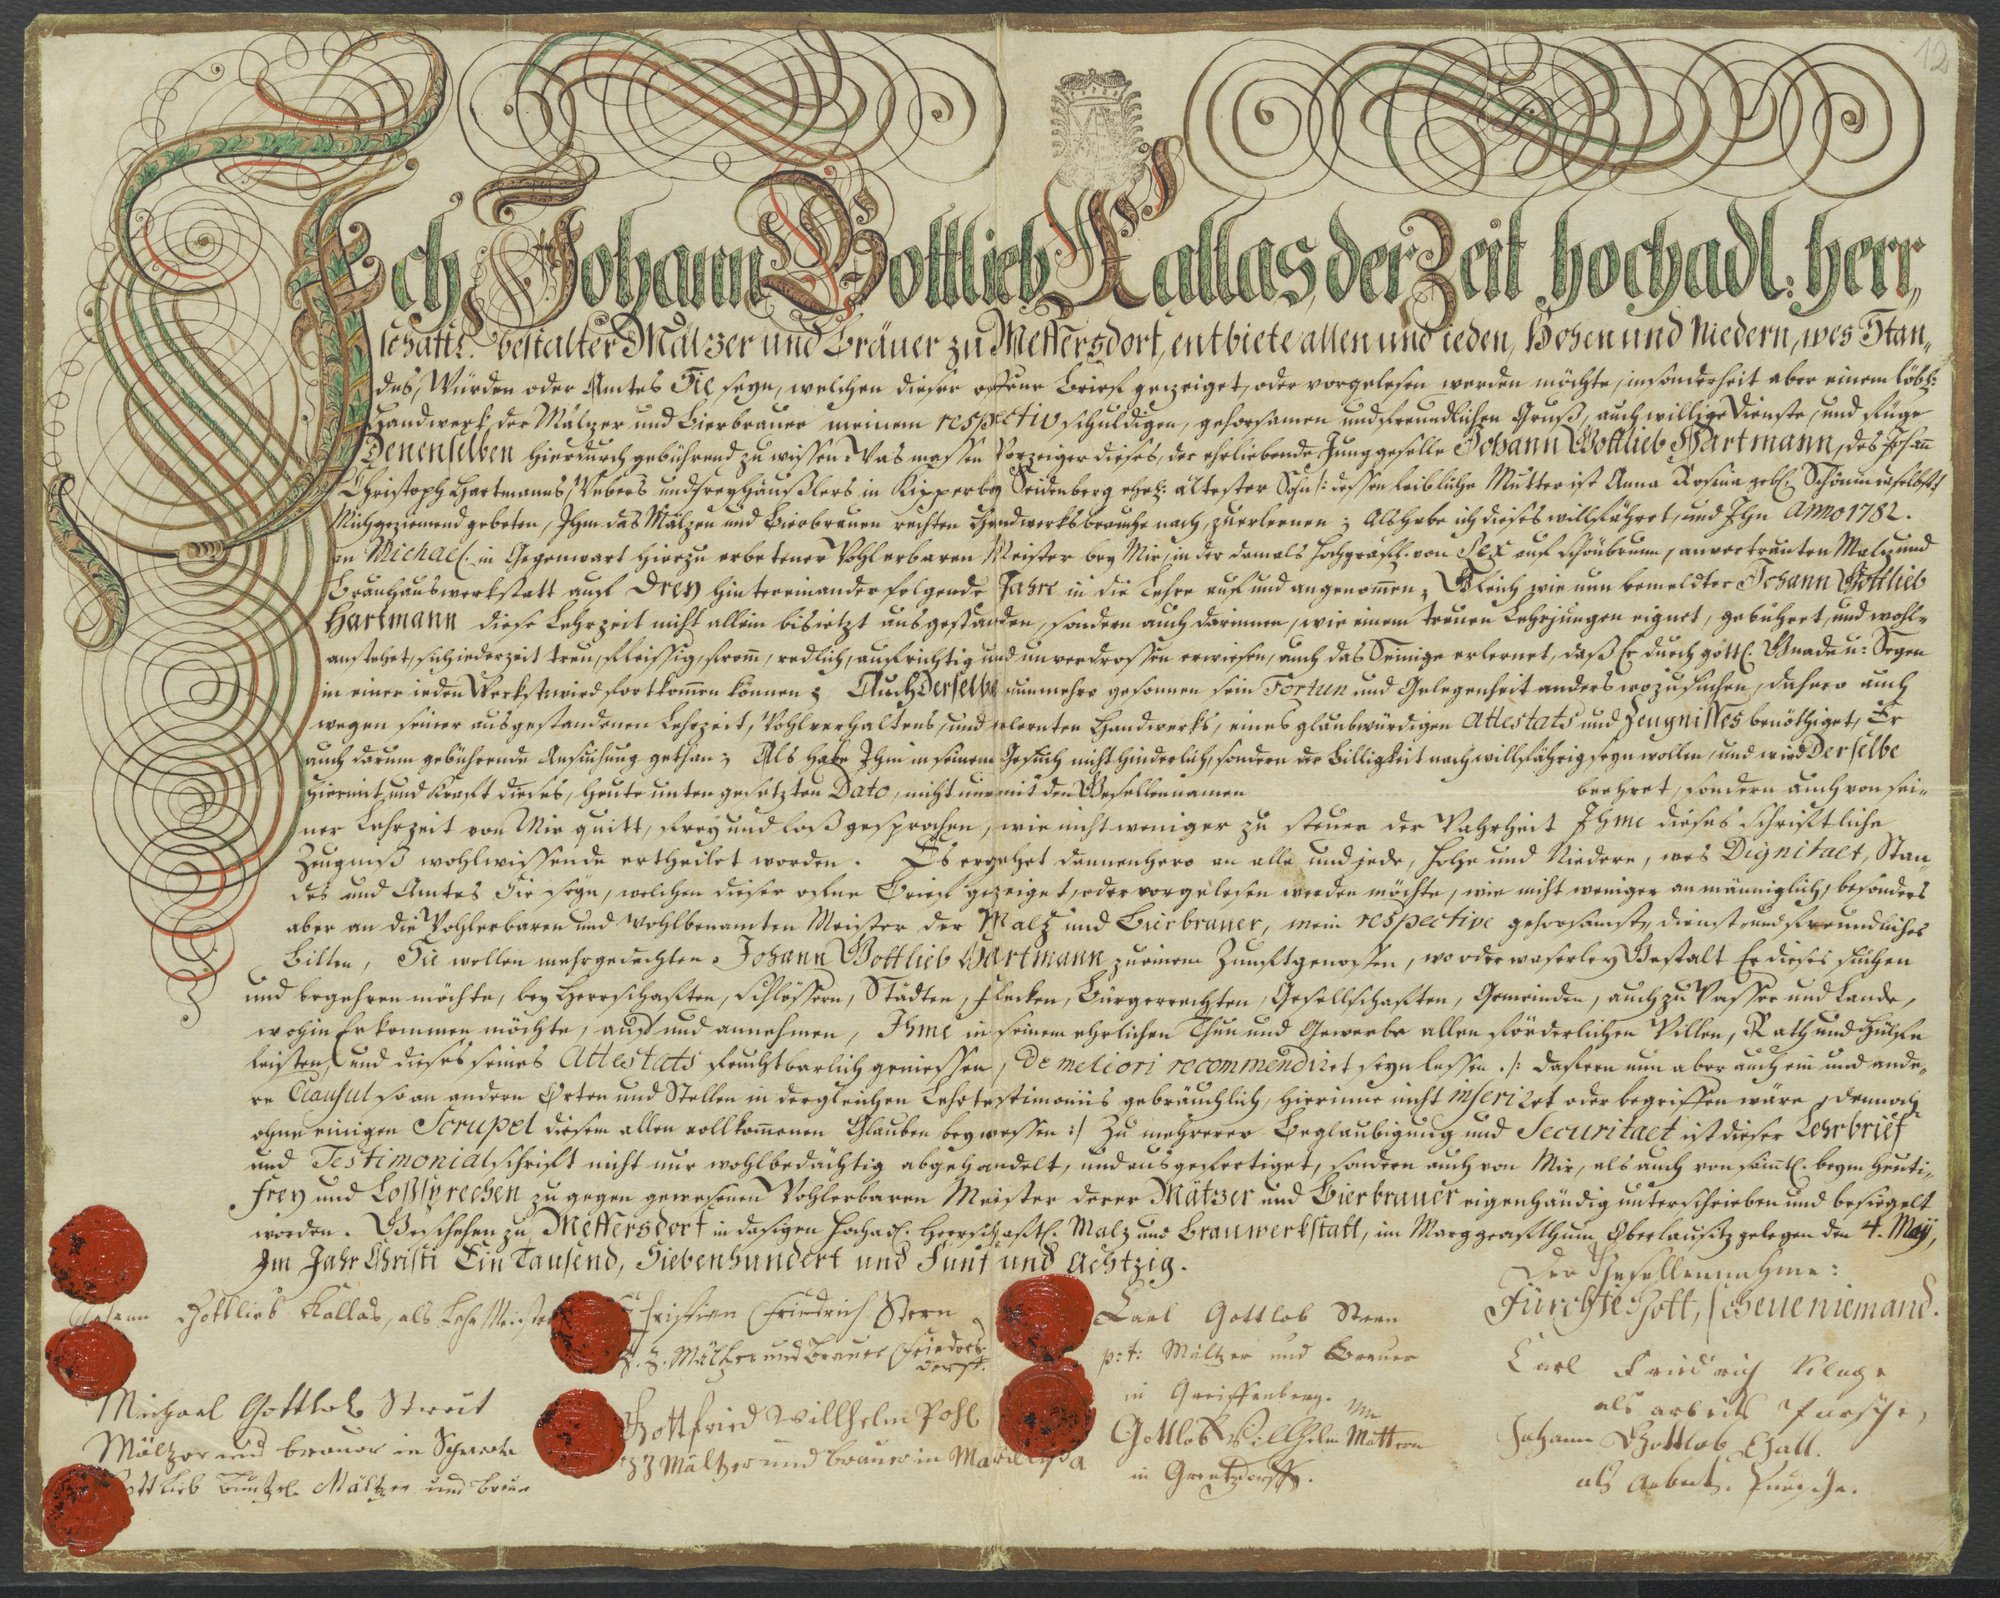 12
Ich Johann Gottlieb Kallas, der Zeit hochadl: herr,,
schaftl. bestalter Mälzer und Bräuer zu Meffersdorf, entbiete allen und ieden, Hohen und Niedern, wes Stan,,
des, Würden oder Amtes Sie seyn, welchen dieser offene Brief gezeiget, oder vorgelesen werden möchte, insonderheit aber einem löbl:
Handwerk der Mälzer und Bierbrauer meinem respectiv schuldigen, gehorsamen und freundlichen Gruß, auch willige Dienste, und füge
Denenselben hierdurch gebührend zu wissen: Was massen Vorzeiger dieses, der ehrliebende Junggeselle Johann Gottlieb Hartmann, des Johann
Christoph Hartmanns, Webers und freyhäußlers in bey Seidenberg ehel: ältester Sohn /: dessen leibliche Mutter ist Anna Rosina gebl.
Mich geziemend gebeten, Ihm das Mälzen und Bierbrauen rechten Handwerksbrauche nach, zu erlernen; Als habe ich dieses willfahret, und Ihn Anno 1782.
an Michael. in Gegenwart hierzu erbetener Wohlerbaren Meister bey Mir, in der damals hochgräfl. von auf schönbrunn, anvertrauten Malz und
Bräuhauswerkstatt auf Drey hintereinander folgende Jahre in die Lehre auf und angenomen; Gleich wie nun bemeldter Johann Gottlieb
Hartmann diese Lehrzeit nicht allein bis ietzt ausgestanden, sondern auch darinnen, wie einem treuen Lehrjungen eignet, gebühret, und wohl=
anstehet, sich iederzeit treu, fleissig, from, redlich, aufrichtig und unverdrossen erwiesen, auch das Seinige erlernet, daß Er durch göttl. Gnade u: Segen
in einer ieden Werkst: wird fortkomen können; Auch Derselbe nunmehro gesonnen sein Fortun und Gelegenheit anderswo zu suchen, dahero auch
wegen seiner ausgestandenen Lehrzeit, Wohlverhaltens, und erlernten Handwerks, eines glaubwürdigen Attestats und Zeugnisses benöthiget, Er
auch darum gebührende Ansuchung gethan; Als habe Ihm in seinem Gesuch nicht hinderlich, sondern der Billigkeit nach willfährig seyn wollen, und wird Derselbe
hiermit und Kraft dieses, heute unten gesetzten Dato, nicht nur mit den Gesellennamen beehret, sondern auch von sei=
ner Lehrzeit von Mir quitt, frey und loß gesprochen, wie nicht weniger zu steuer der Wahrheit Ihme dieses schriftliche
Zeugniß wohlwissende ertheilet worden. Es ergehet dannenhero an alle und jede, Hohe und Niedere, wes Dignitaet, Stan,,
des und Amtes Sie seyn, welchen dieser offene Brief gezeiget, oder vorgelesen werden möchte, wie nicht weniger an männiglich, besonders
aber an die Wohlerbaren und wohlbenamten Meister der Malz und Bierbrauer, mein respective gehorsamste, dienst und freundliches
Bitten, Sie wollen mehrgedachten Johann Gottlieb Hartmann zu einem Zunftgenossen, wo oder waserley Gestalt Er dieses suchen
und begehren möchte, bey Herrschaften, Schlössern, Städten, Flecken, Bürgerrechten, Gesellschaften, Gemeinden, auch zu Wasser und Lande,
wohin Er kommen möchte, auf und annehmen, Ihme in seinem ehrlichen Thun und Gewerbe allen förderlichen Willen, Rath und Hülfe
leisten, und dieses seines Attestats fruchtbarlich geniessen, De meliori recommendiret seyn lassen. /: dafern nun aber auch ein und ande,,
re Clausul so an andern Orten und Stellen in dergleichen Lehrtestimoniis gebräuchlich, hierinne nicht inseriret oder begriffen wäre, dennoch
ohne einigen Scrupel diesem allen vollkomenen Glauben beymessen :/ Zu mehrerer Beglaubigung und Securitaet ist dieser Lehrbrief
und Testimonialschrift nicht nur wohlbedächtig abgehandelt, und ausgefertiget, sondern auch von Mir, als auch von sämtl. beym heuti=
Frey und Loßsprechen zugegen gewesenen Wohlerbaren Meister derer Mälzer und Bierbrauer eigenhändig unterschrieben und besiegelt
worden. Geschehen zu Meffersdorf in dasigen hochadl. Herrschaftl. Malz und Brauwerkstatt, im Marggrafthum Oberlausitz gelegen den 4. May,
Im Jahr Christi Ein Tausend, Siebenhundert und Fünf und Achtzig.
Der Gesellennahme:
Fürchte Gott, scheue niemand.
Johann Gottlieb Kallas, als Lehr Meister
Christian Friedrich Stern
Z. Z. Mältzer und Brauer Friedersdorff.
Carl Gottlob Stern
p: t: Mältzer und Brauer
in Greiffenberg.
Carl Friedrich
als arbeits Pursche,
Michael Gottlob Streit
Mältzer und brauer in
Gottfried Willhelm Pohl
ZZ Mältzer und brauer in Marcklissa
Gottlob Wilhelm
in
Johann Gottlob
als Arbeits Pursche.
Gottlieb Mältzer und Breuer